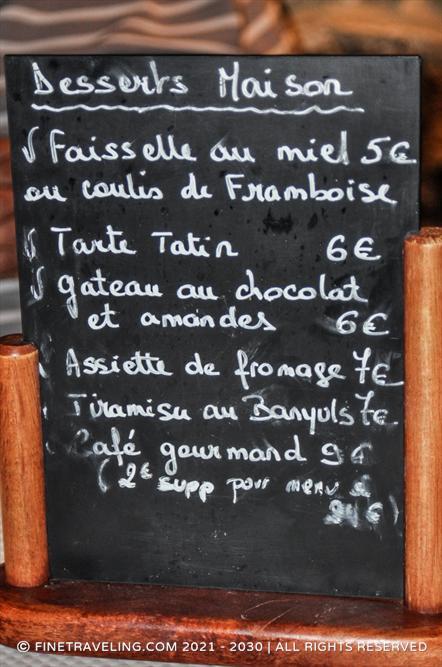 Desserts Maison
√ Faisselle au miel 5€
ou coulis de Framboise
√ Tarte Tatin 6€
√ gateau au chocolat
et amandes 6€
Assiette de fromage 7€
Tiramisu au Banyuls 7€
Café gourmand 9€
(2€ supp pour menu